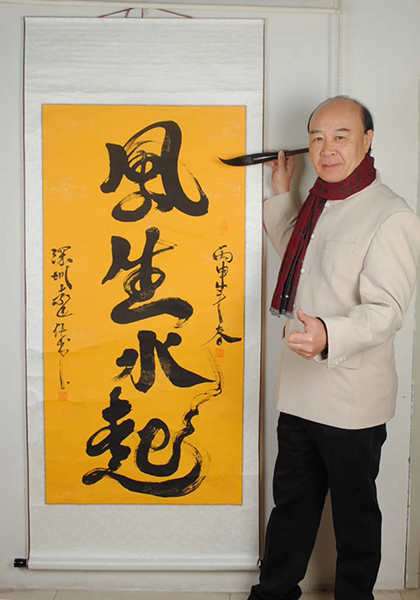 丙申年春
風生水起
深圳